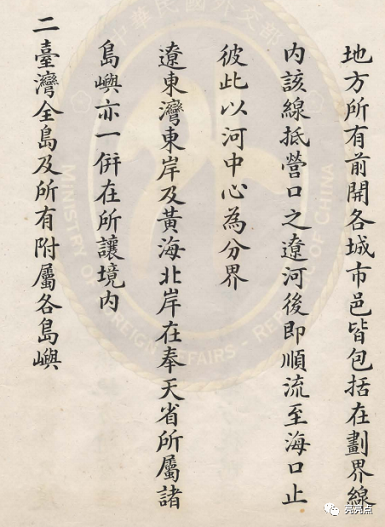 地方所有前開各城市邑皆包括在劃界線
內該線抵營口之遼河後即順流至海口止
彼此以河中心為分界
遼東灣東岸及黃海北岸在奉天省所屬諸
島嶼亦一併在所讓境內
二臺灣全島及所有附屬各島嶼
中華民國外交部
MINISTRY OF FOREIGN AFFAIRS - REPUBLIC OF CHINA
亮亮点